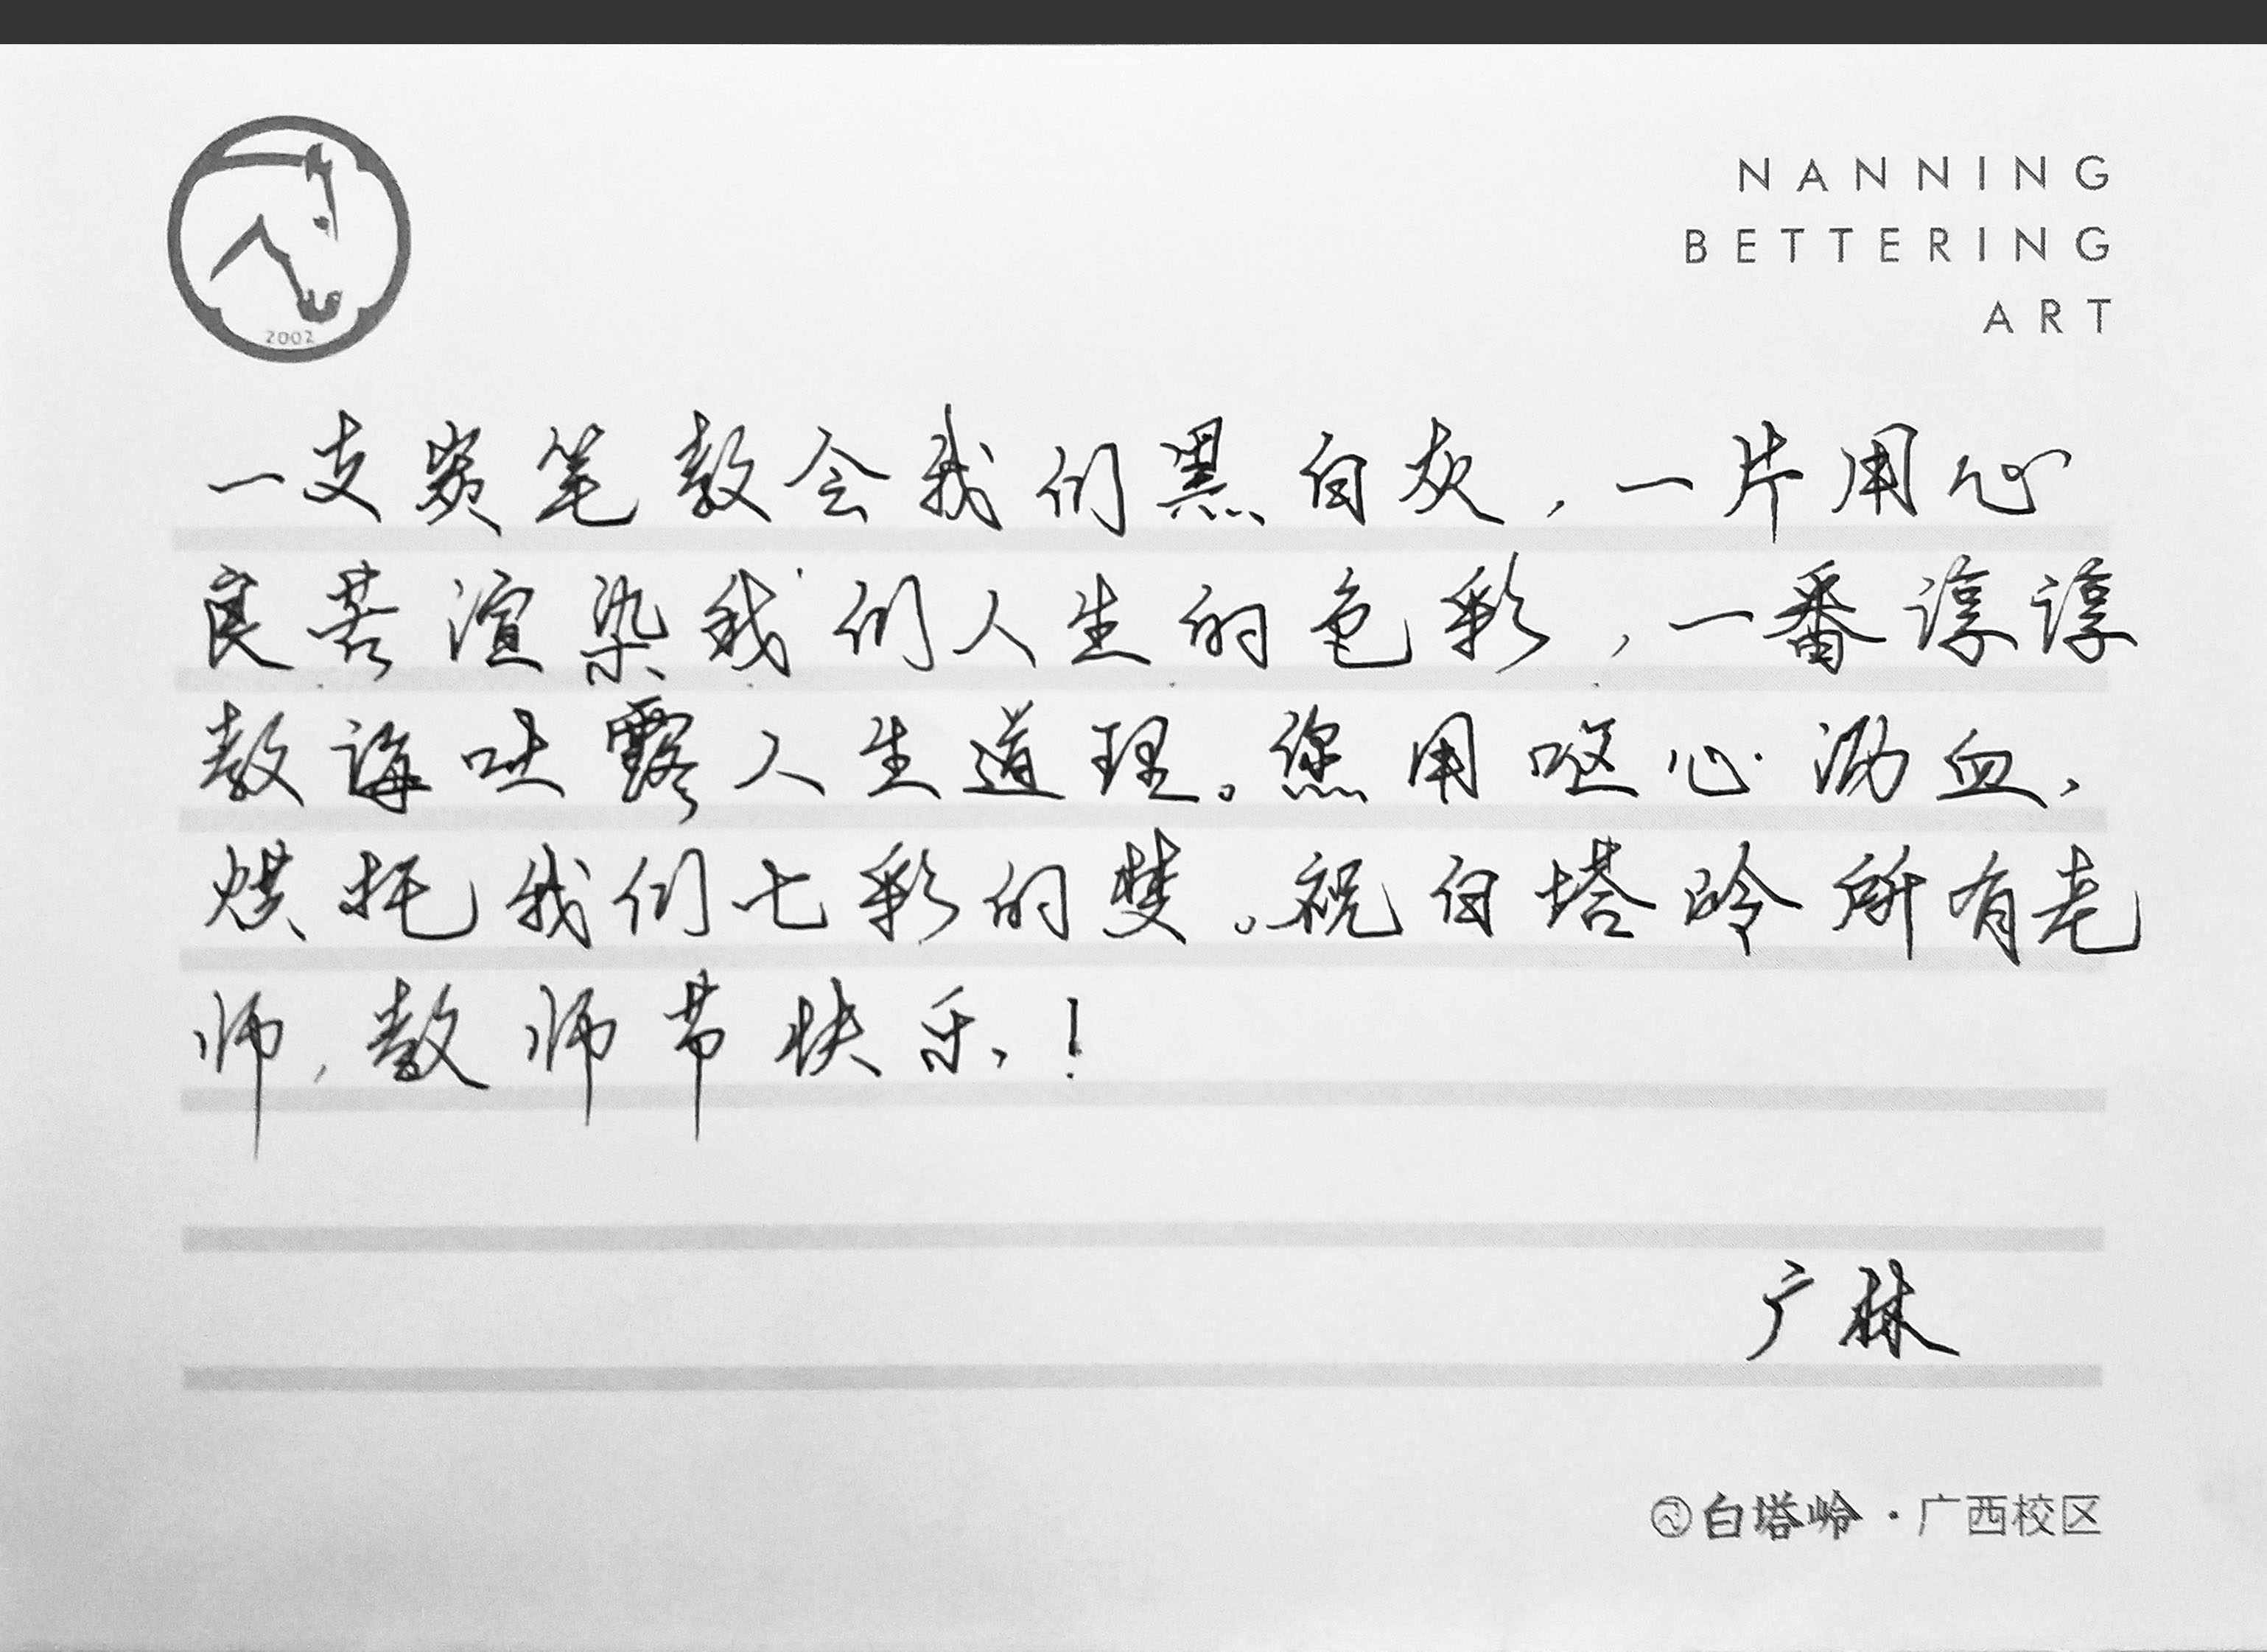 2002
NANNING
BETTERING
ART
一支炭笔教会我们黑白灰，一片用心
良苦渲染我们人生的色彩，一番谆谆
教诲吐露人生道理。您用呕心沥血，
烘托我们七彩的梦。祝白塔岭所有老
师，教师节快乐！
广林
白塔岭·广西校区